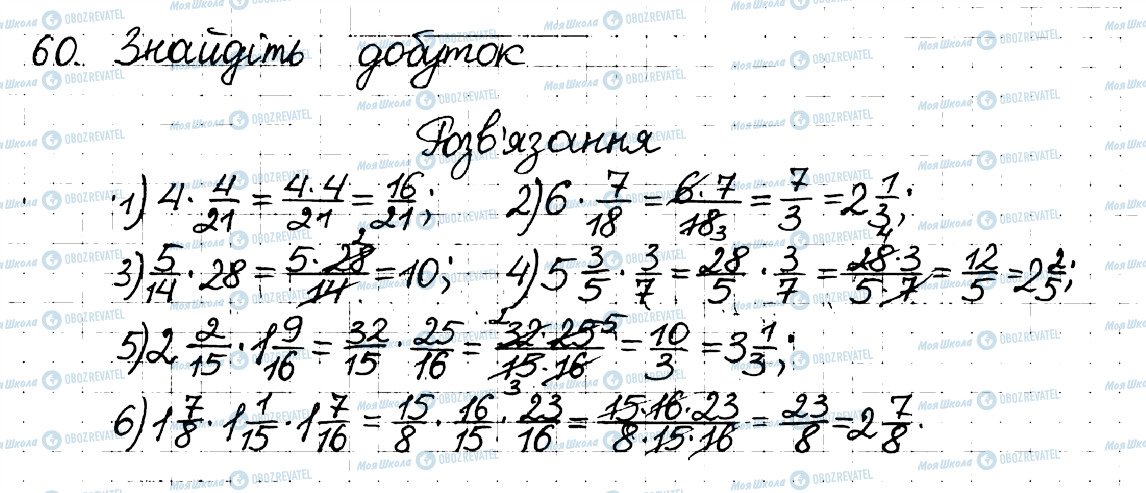 60. Знайдіть добуток
Розв'язання
1) 4 · 4/21 = 4·4/21 = 16/21; 2) 6 · 7/18 = 6·7/18 3 = 7/3 = 2 1/3;
3) 5/14 · 28 = 5·28 2/14 = 10; 4) 5 3/5 · 3/7 = 28/5 · 3/7 = 28 4·3/5·7 = 12/5 = 2 2/5;
5) 2 2/15 · 1 9/16 = 32/15 · 25/16 = 2 32·25 5/15 3·16 = 10/3 = 3 1/3;
6) 1 7/8 · 1 1/15 · 1 7/16 = 15/8 · 16/15 · 23/16 = 15·16·23/8·15·16 = 23/8 = 2 7/8.